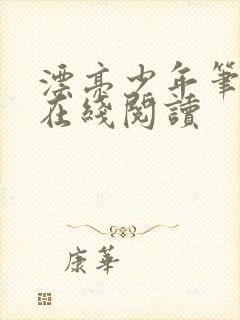 漂亮少年筆
在綫閱讀
康華